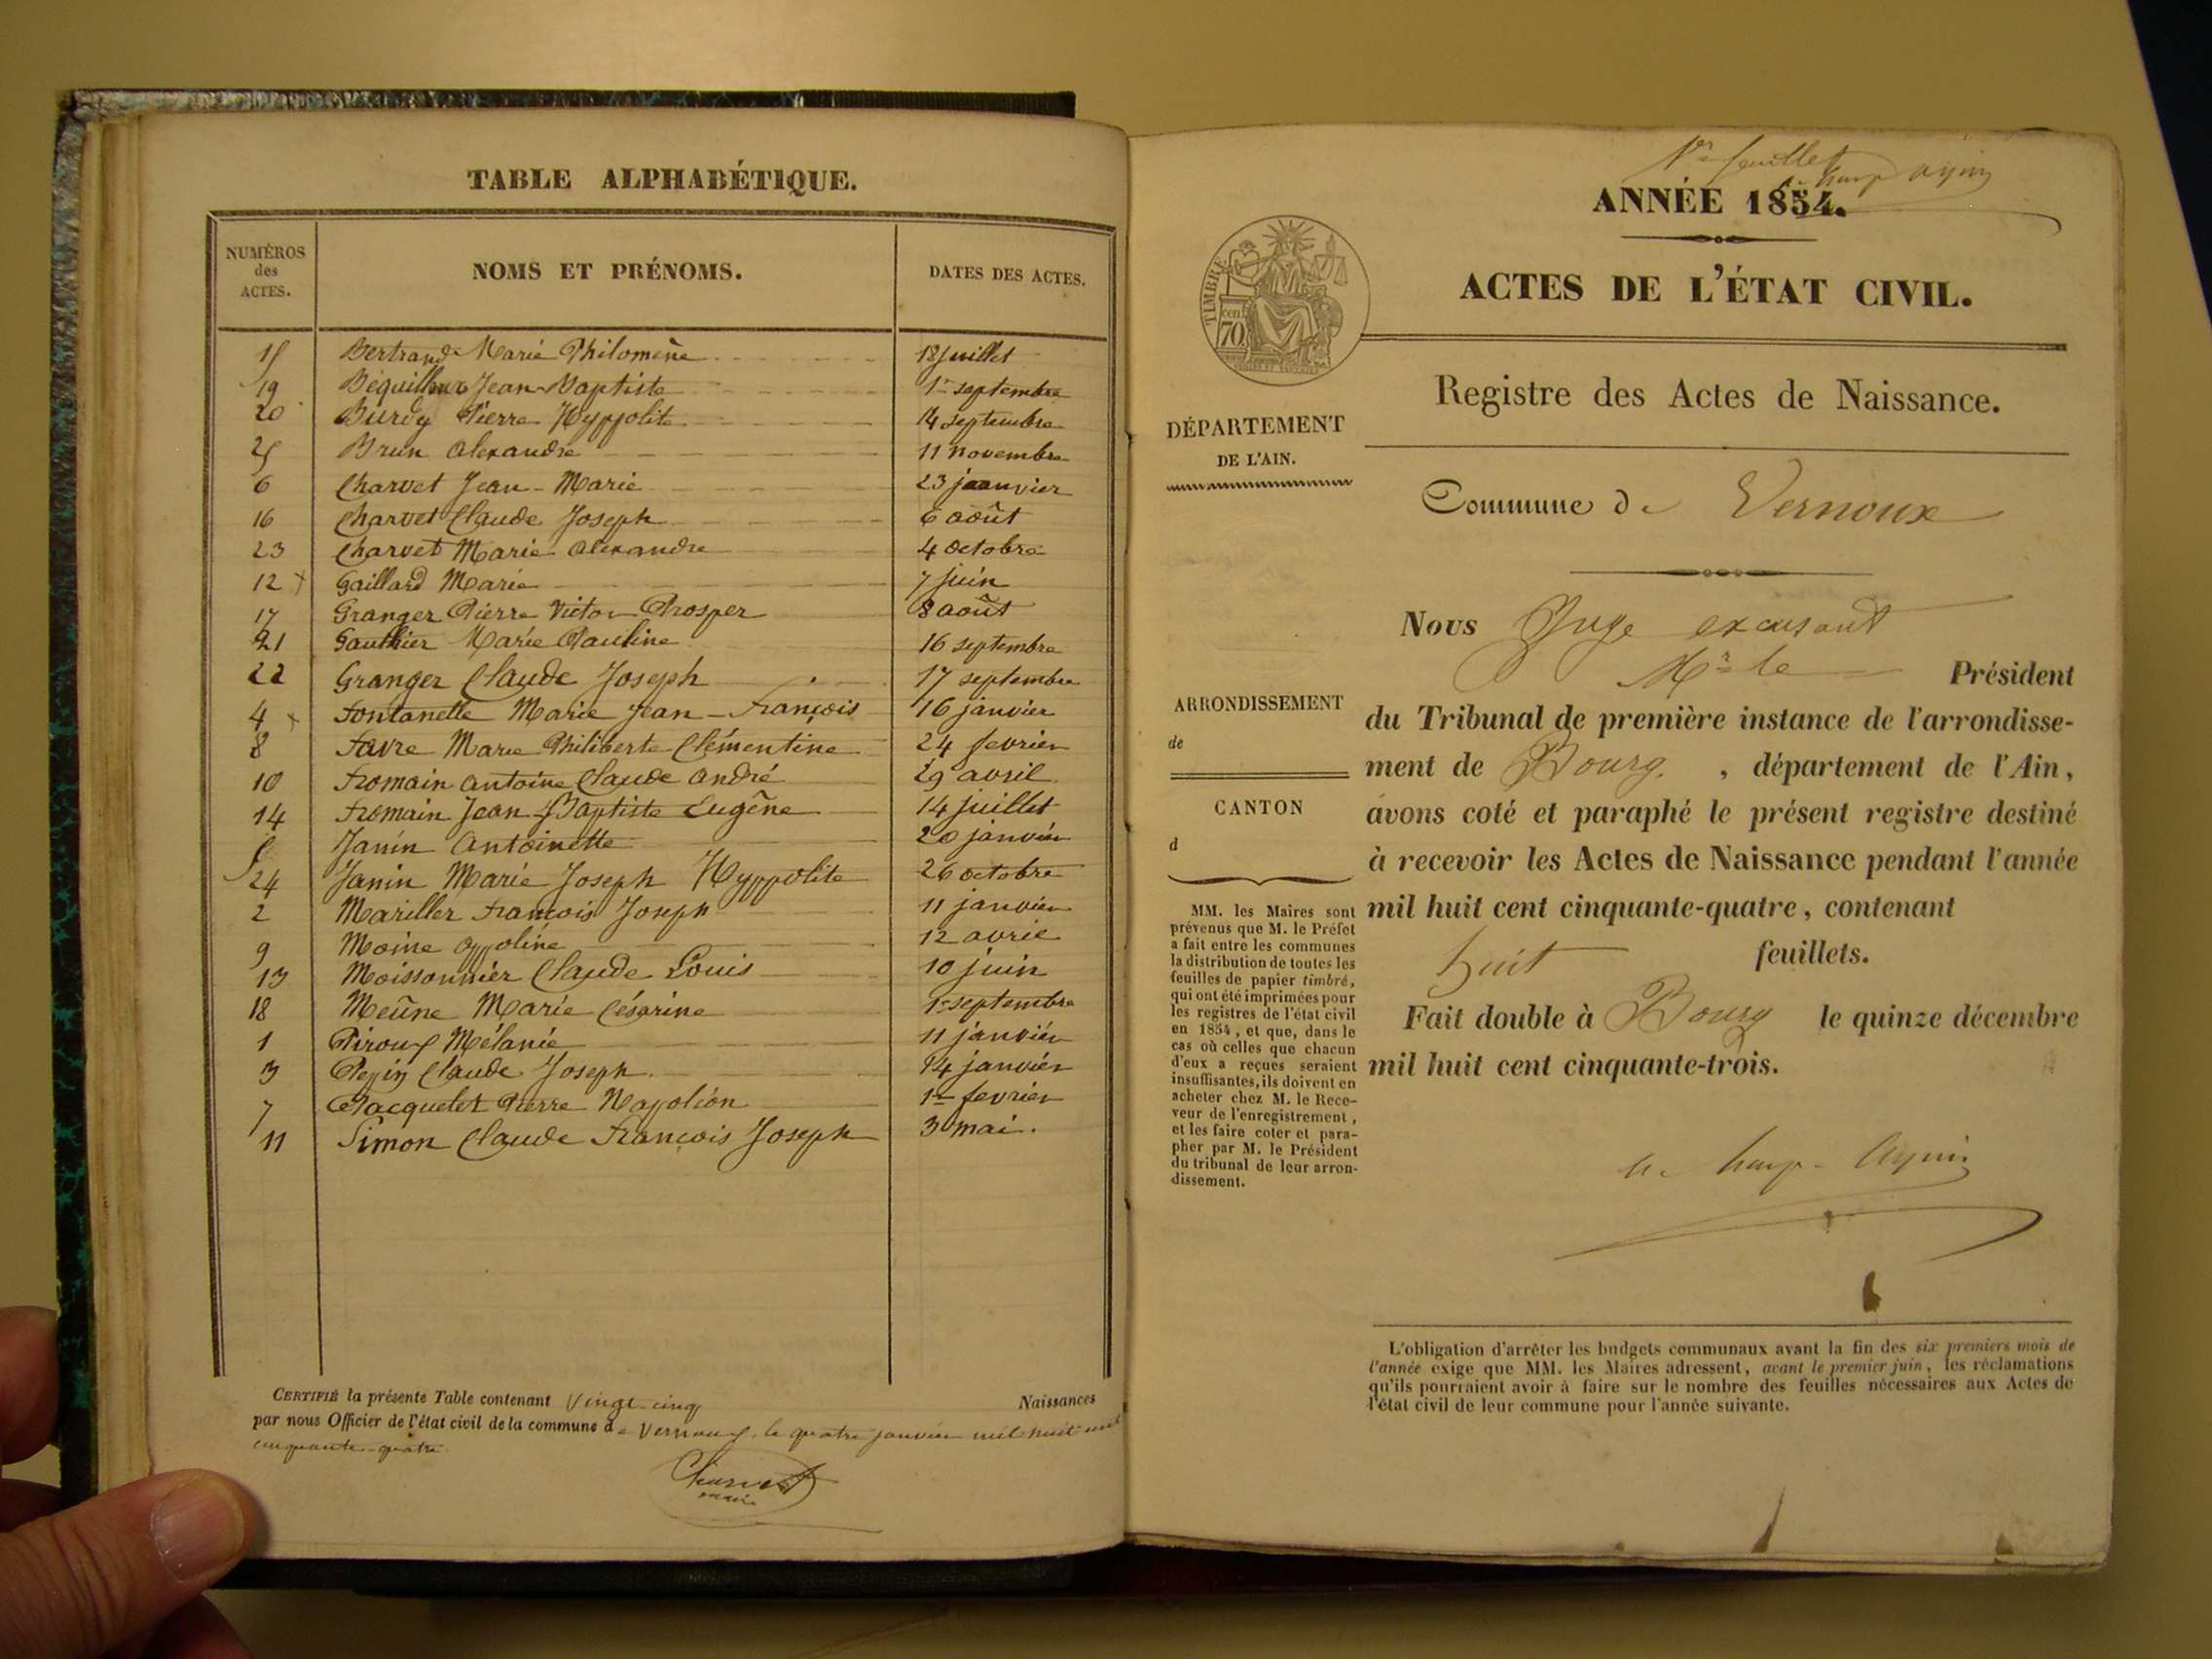 TABLE ALPHABÉTIQUE.
NUMÉROS des ACTES. NOMS ET PRÉNOMS. DATES DES ACTES.
15 Bertrand Marie Philomène 18 juillet
19 Béquilleux Jean-Baptiste 1er septembre
20 Burdy Pierre Hyppolite 14 septembre
25 Brun Alexandre 11 novembre
6 Charvet Jean-Marie 23 janvier
16 Charvet Claude Joseph 6 août
23 Charvet Marie Alexandre 4 octobre
12 x Gaillard Marie 7 juin
17 Granger Pierre Victor Prosper 8 août
21 Gauthier Marie Pauline 16 septembre
22 Granger Claude Joseph 17 septembre
4 x Fontanelle Marie Jean-François 16 janvier
8 Favre Marie Philiberte Clémentine 24 fevrier
10 Fromain Antoine Claude André 29 avril
14 Fromain Jean Baptiste Eugêne 14 juillet
5 Janin Antoinette 20 janvier
24 Janin Marie Joseph Hyppolite 26 octobre
2 Mariller François Joseph 11 janvier
9 Moine Appoline 12 avril
13 Moissonnier Claude Louis 10 juin
18 Meûne Marie Césarine 1er septembre
1 Piroux Mélanie 11 janvier
3 Pepin Claude Joseph 14 janvier
7 Pacquelet Pierre Napoléon 1er fevrier
11 Simon Claude François Joseph 3 mai.
CERTIFIÉ la présente Table contenant Vingt-cinq Naissances
par nous Officier de l'état civil de la commune de Vernoux le quatre janvier mil huit cent
cinquante-quatre
Charvet
maire
1er feuillet
ANNÉE 1854.
ACTES DE L'ÉTAT CIVIL.
TIMBRE
70 cent
Registre des Actes de Naissance.
DÉPARTEMENT
DE L'AIN.
Commune de Vernoux
Nous Juge excusant
Mr le Président
du Tribunal de première instance de l'arrondisse-
ment de Bourg, département de l'Ain,
avons coté et paraphé le présent registre destiné
à recevoir les Actes de Naissance pendant l'année
mil huit cent cinquante-quatre, contenant
huit feuillets.
Fait double à Bourg le quinze décembre
mil huit cent cinquante-trois.
ARRONDISSEMENT
de
CANTON
d
MM. les Maires sont
prévenus que M. le Préfet
a fait entre les communes
la distribution de toutes les
feuilles de papier timbré,
qui ont été imprimées pour
les registres de l'état civil
en 1854, et que, dans le
cas où celles que chacun
d'eux a reçues seraient
insuffisantes, ils doivent en
acheter chez M. le Rece-
veur de l'enregistrement,
et les faire coter et para-
pher par M. le Président
du tribunal de leur arron-
dissement.
L'obligation d'arrêter les budgets communaux avant la fin des six premiers mois de
l'année exige que MM. les Maires adressent, avant le premier juin, les réclamations
qu'ils pourraient avoir à faire sur le nombre des feuilles nécessaires aux Actes de
l'état civil de leur commune pour l'année suivante.